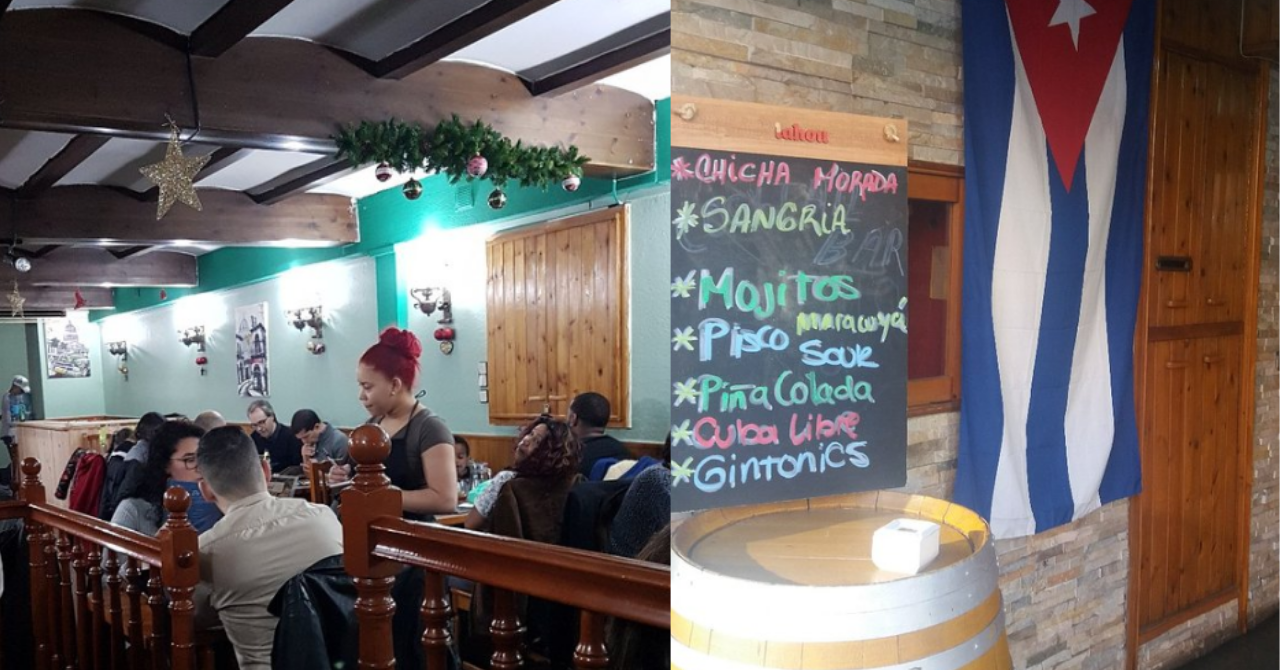 tahona
*CHICHA MORADA
*SANGRIA
BAR
*MOJITOS
maracuyá
*PISCO SOUR
*Piña Colada
*Cuba Libre
*GINTONICS